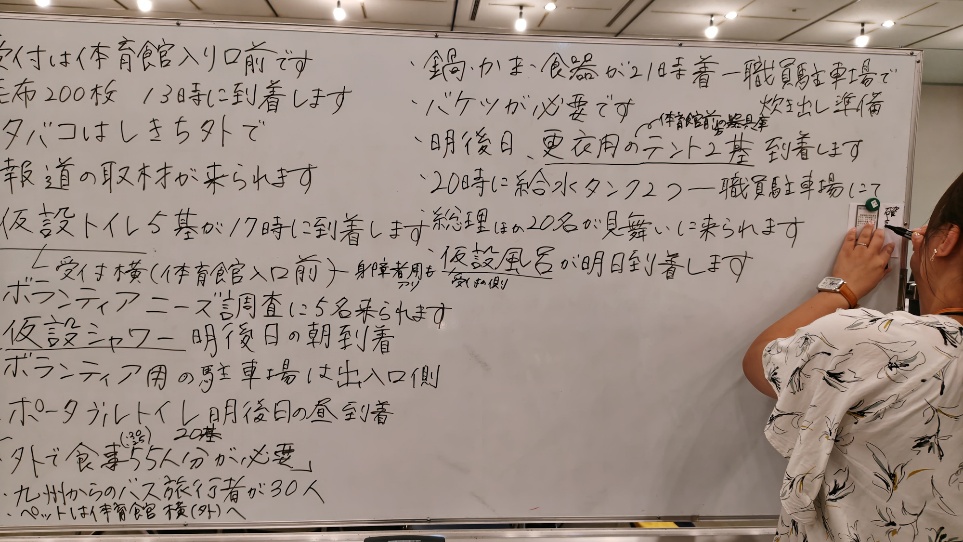 受付は体育館入り口前です
毛布200枚 13時に到着します
タバコはしきち外で
報道の取材が来られます
仮設トイレ5基が17時に到着します
受付横(体育館入口前) 身障者用も
ボランティアニーズ調査に5名来られます
仮設シャワー 明後日の朝到着
ボランティア用の駐車場は出入口側
・ポータブルトイレ明後日の昼到着
20基
・外で食事55人分が必要」
・九州からのバス旅行者が30人
・ペットは体育館横(外)へ
・鍋・かま・食器が21時着―職員駐車場で
炊き出し準備
・バケツが必要です
体育館前の
・明後日、更衣用のテント2基到着します
・20時に給水タンク2つ―職員駐車場にて
・総理ほか20名が見舞いに来られます
・仮設風呂が明日到着します